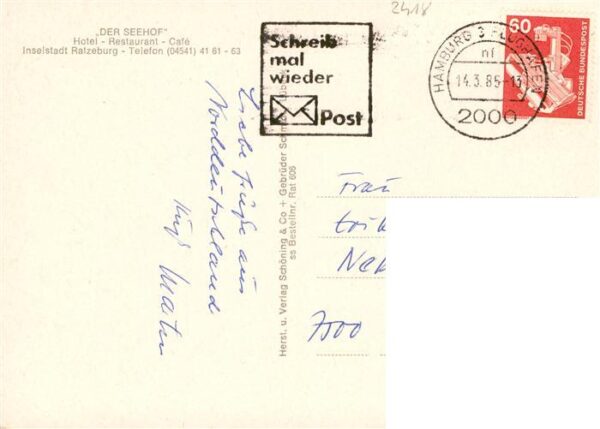 2418
„DER SEEHOF"
Hotel - Restaurant - Café
Inselstadt Ratzeburg - Telefon (04541) 41 61 - 63
Schreib
mal
wieder
Post
HAMBURG 3 FLUGHAFEN
nf
14.3.85-13
2000
60
DEUTSCHE BUNDESPOST
Liebe Grüße aus
Norddeutschland
Martin
Herst. u. Verlag Schöning & Co + Gebrüder Schmidt, Lübeck
ss Bestellnr. Rat 606
Frau
Erik
7500